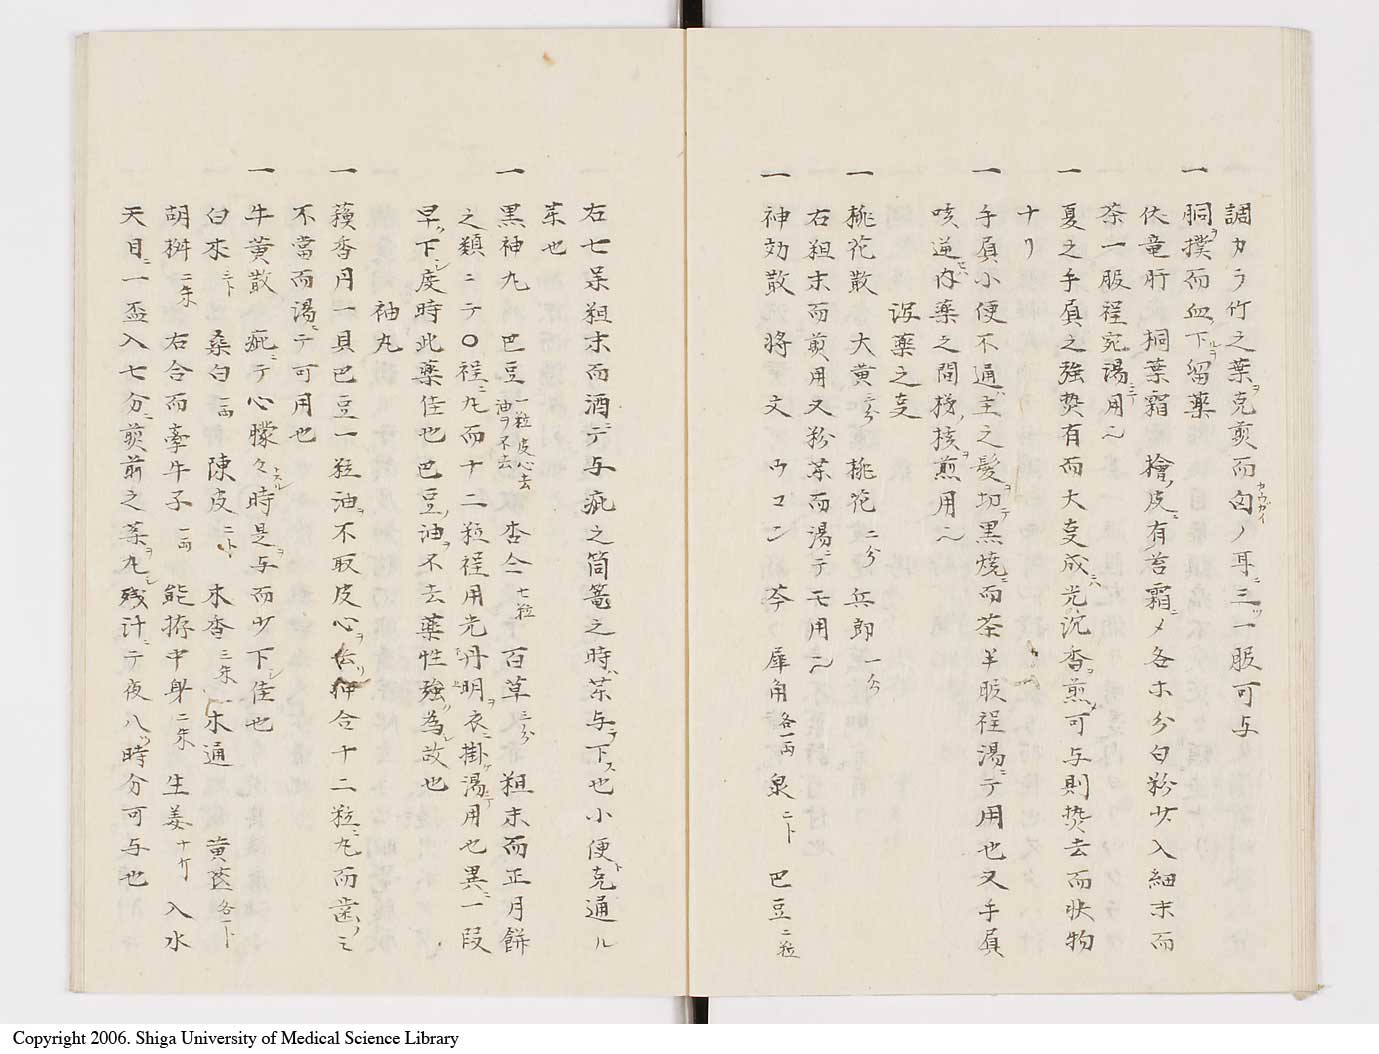 調カラ竹之葉ヲ克煎而白ノ耳ニ三ツ一服可与
一 胴ヲ撲而血下ルヲ留薬
伏竜肝 桐葉霜 檜ノ皮ニ有苔霜ニメ各ホ分白粉少入細末而
茶一服程宛湯ニテ用
一 夏之手負之強熱有而大変成ニハ光沉香ヲ煎メ可与則熱去而吠物
ナリ
一 手負小便不通ハ主之髪ヲ切テ黒焼ニ而茶半服程湯ニテ用也又手負
咳逆ハ内薬之間ノ核ヲ煎用
薬之変
一 桃花散 大黄三分 桃花二分 兵郎一分
右粗末而煎用又粉茶而湯ニテモ用
一 神効散 将 文 ウコン 苓 犀角各一両 泉二ト 巴豆二粒
右七呆粗末而酒ニテ与疵之筒篭之時ハ茶与テ下ス也小便克ト通ル
茶也
一 黒神丸 巴豆一粒皮心去油ヲ不去 杏仁七粒 百草三分 粗末而正月餅
之類ニテ〇程ニ丸而十二粒程用光丹明衣ニ掛ケ湯ニテ用也異ニ一段
早ツ下シ度時此薬佳也巴豆ノ油ヲ不去薬性強ツ為シ故也
袖丸
一 蘋香丹一貝巴豆一粒油ヲ不取皮心ヲ去リ押合十二粒ニ丸而歯ノミ
不當而湯ニテ可用也
一 牛黄散 疵ニテ心朦々トスル時是ヲ与而少下シ佳也
白朮三ト 桑白一両 陳皮二ト 木香三朱 木通 黄莲各一ト
胡桝二朱 右合而牽牛子一両 能擣中身二朱 生姜十片 入水
天目ニ一盃入七分ニ煎前之薬ヲ丸シ残汁ニテ夜八ツ時分可与也
Copyright 2006. Shiga University of Medical Science Library